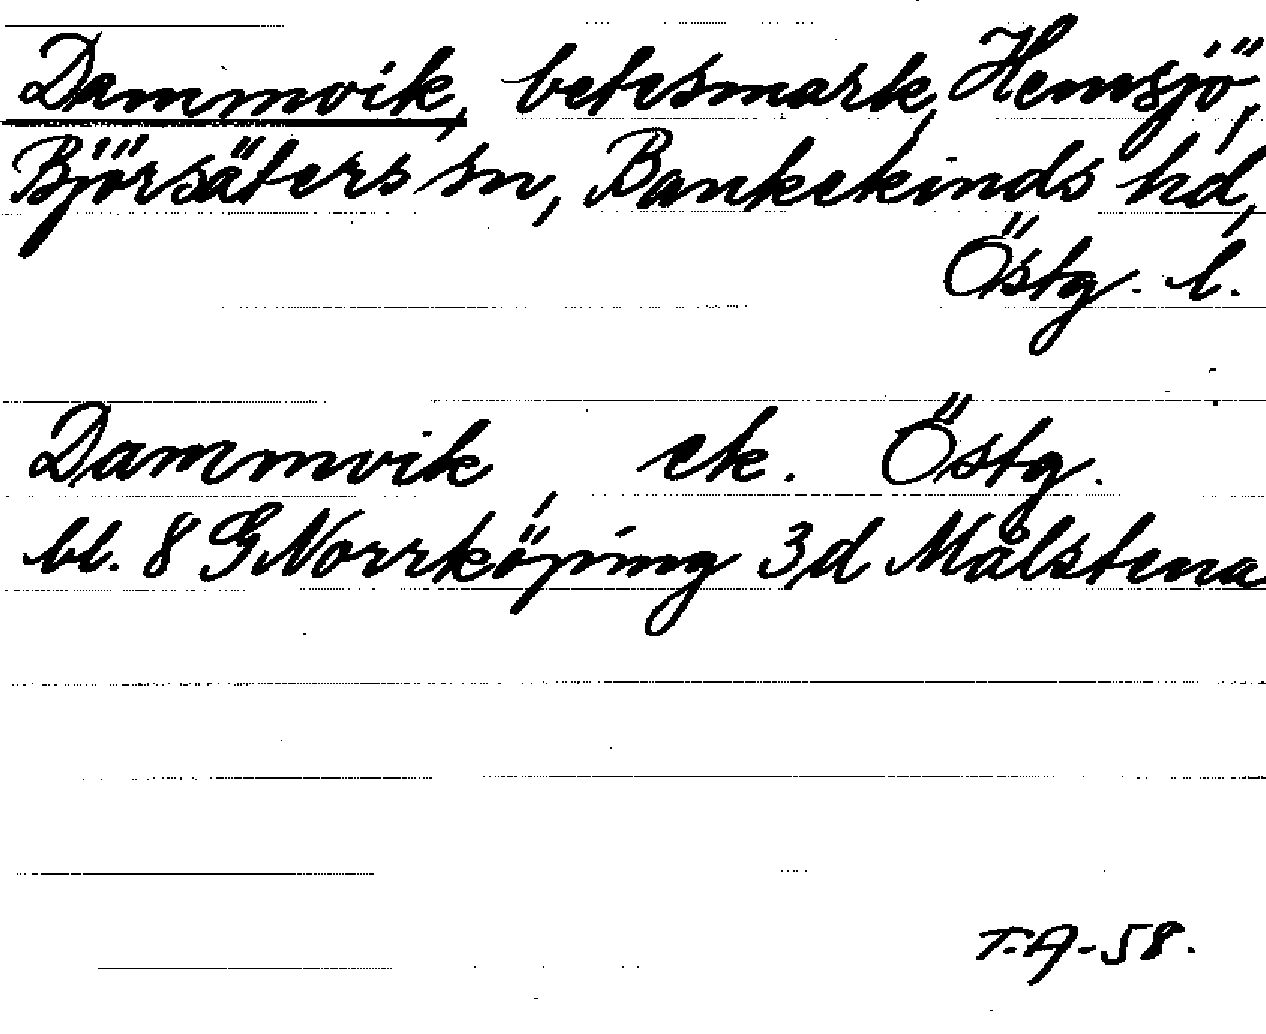 Dammvik, betesmark, Hemsjö,
Björsäters sn, Bankekinds hd,
Östg. l.
Dammvik, ek. Östg.
bl. 8 G Norrköping 3d Målstena
T.A-58.